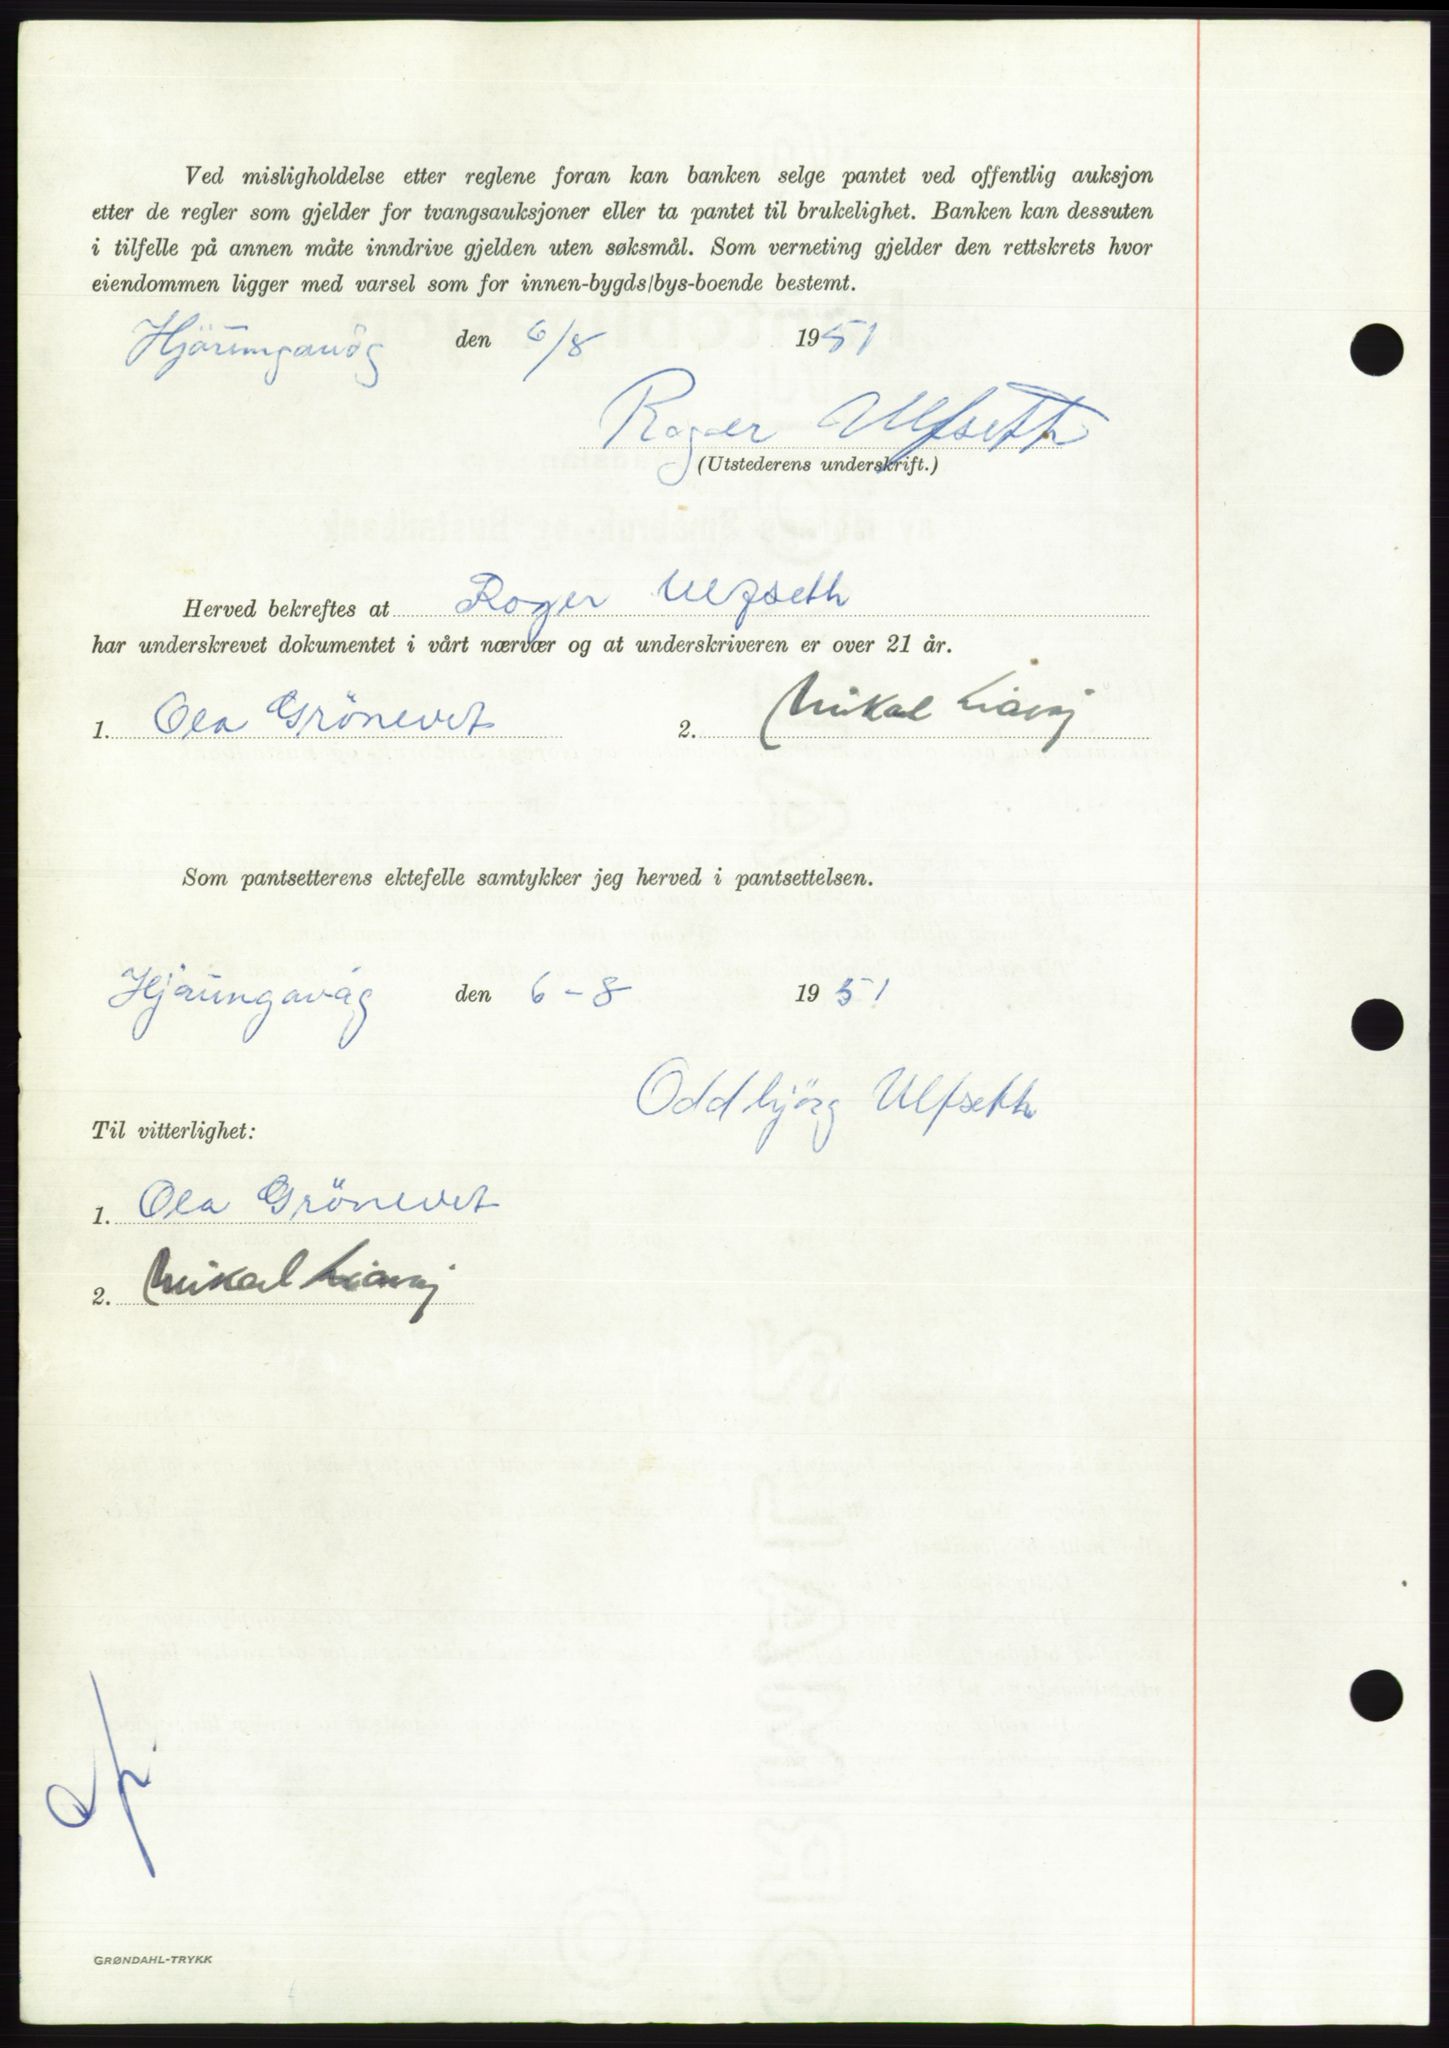 Ved misligholdelse etter reglene foran kan banken selge pantet ved offentlig auksjon
etter de regler som gjelder for tvangsauksjoner eller ta pantet til brukelighet. Banken kan dessuten
i tilfelle på annen måte inndrive gjelden uten søksmål. Som verneting gjelder den rettskrets hvor
eiendommen ligger med varsel som for innen-bygds/bys-boende bestemt.
Hjörungavåg den 6/8 1951
Roger Ulfseth
(Utstederens underskrift.)
Herved bekreftes at Roger Ulfseth
har underskrevet dokumentet i vårt nærvær og at underskriveren er over 21 år.
1. Ola Grönevet 2. Mikal Liavåg
Som pantsetterens ektefelle samtykker jeg herved i pantsettelsen.
Hjörungavåg den 6-8 1951
Oddbjörg Ulfseth
Til vitterlighet:
1. Ola Grönevet
2. Mikal Liavåg
GRØNDAHL-TRYKK